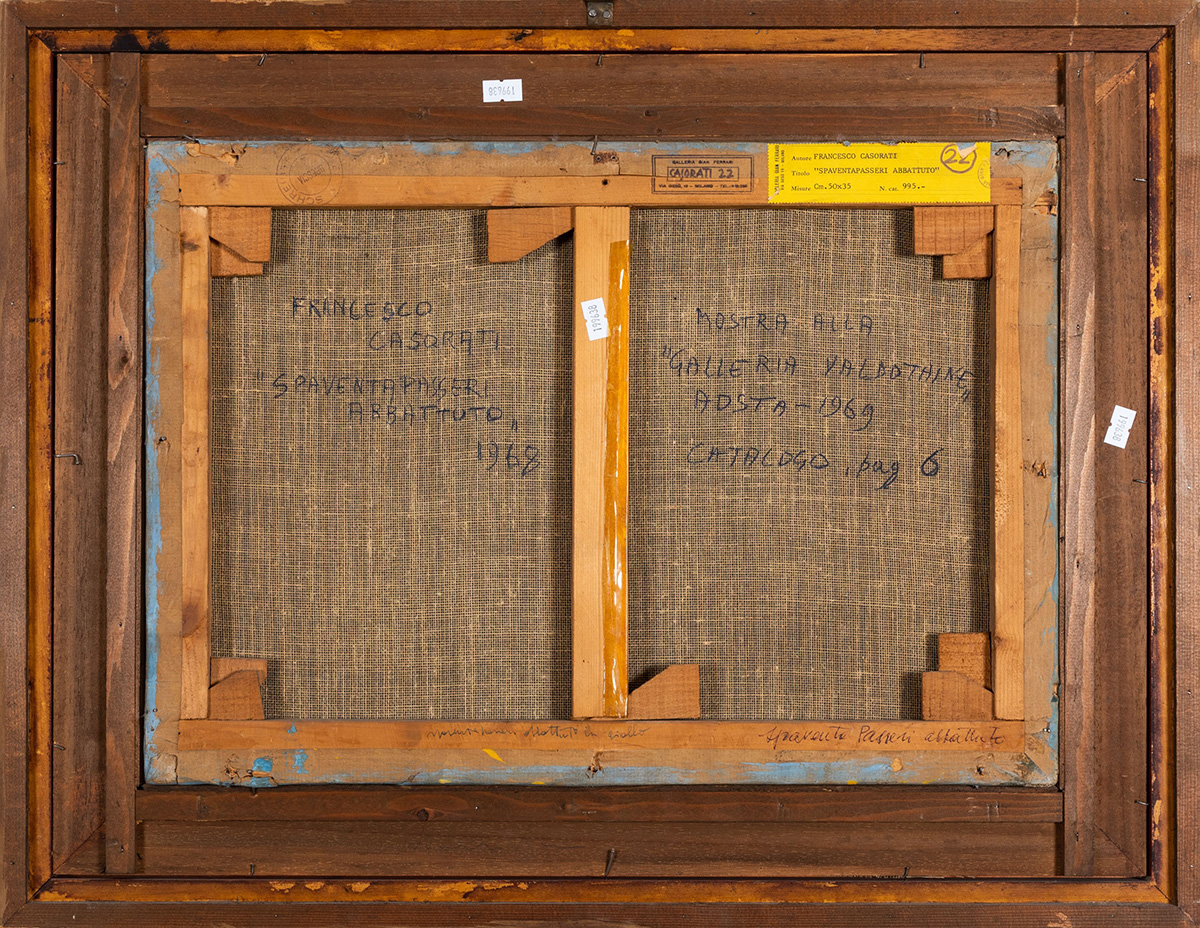 199638
GALLERIA GIAN FERRARI
CASORATI 22
VIA GESÙ, 19 - MILANO
Autore FRANCESCO CASORATI
Titolo "SPAVENTAPASSERI ABBATTUTO"
Misure Cm. 50x35 N. cat. 995.-
22
FRANCESCO
CASORATI
"SPAVENTAPASSERI
ABBATTUTO"
1968
199638
MOSTRA ALLA
"GALLERIA VALDOTAINE"
AOSTA - 1969
CATALOGO, pag 6
199638
abbattuto in giallo
- Spavento Passeri abbattuto